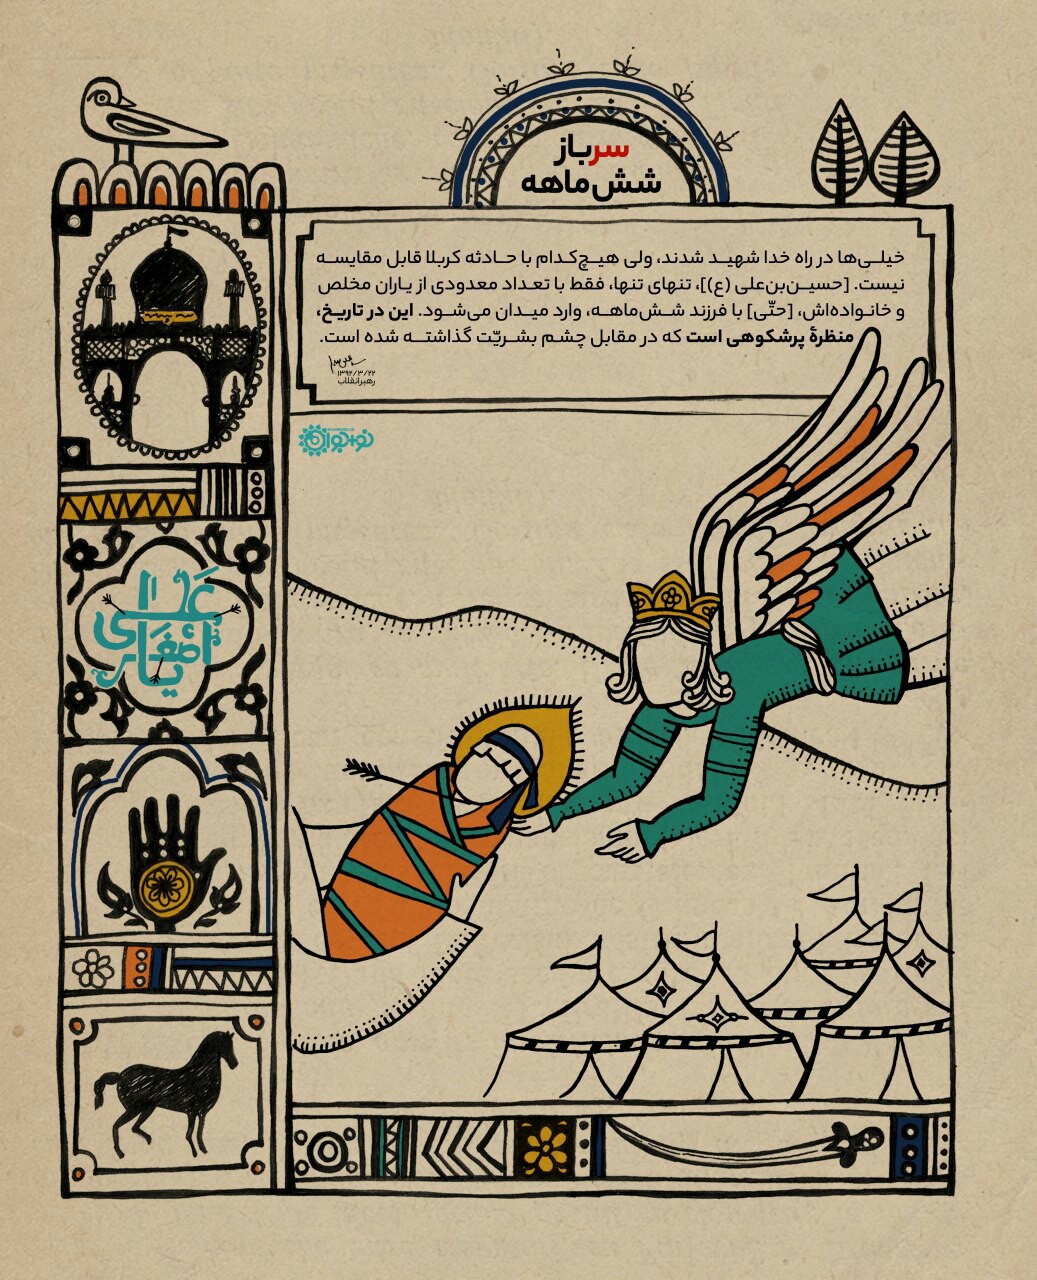 سرباز
شش‌ماهه
خیلی‌ها در راه خدا شهید شدند، ولی هیچ‌کدام با حادثه کربلا قابل مقایسه
نیست. [حسین‌بن‌علی (ع)]، تنهای تنها، فقط با تعداد معدودی از یاران مخلص
و خانواده‌اش، [حتّی] با فرزند شش‌ماهه، وارد میدان می‌شود. این در تاریخ،
منظرهٔ پرشکوهی است که در مقابل چشم بشریّت گذاشته شده است.
۱۳۹۲/۳/۲۲
رهبر انقلاب
نوجوان
علی
اصغر